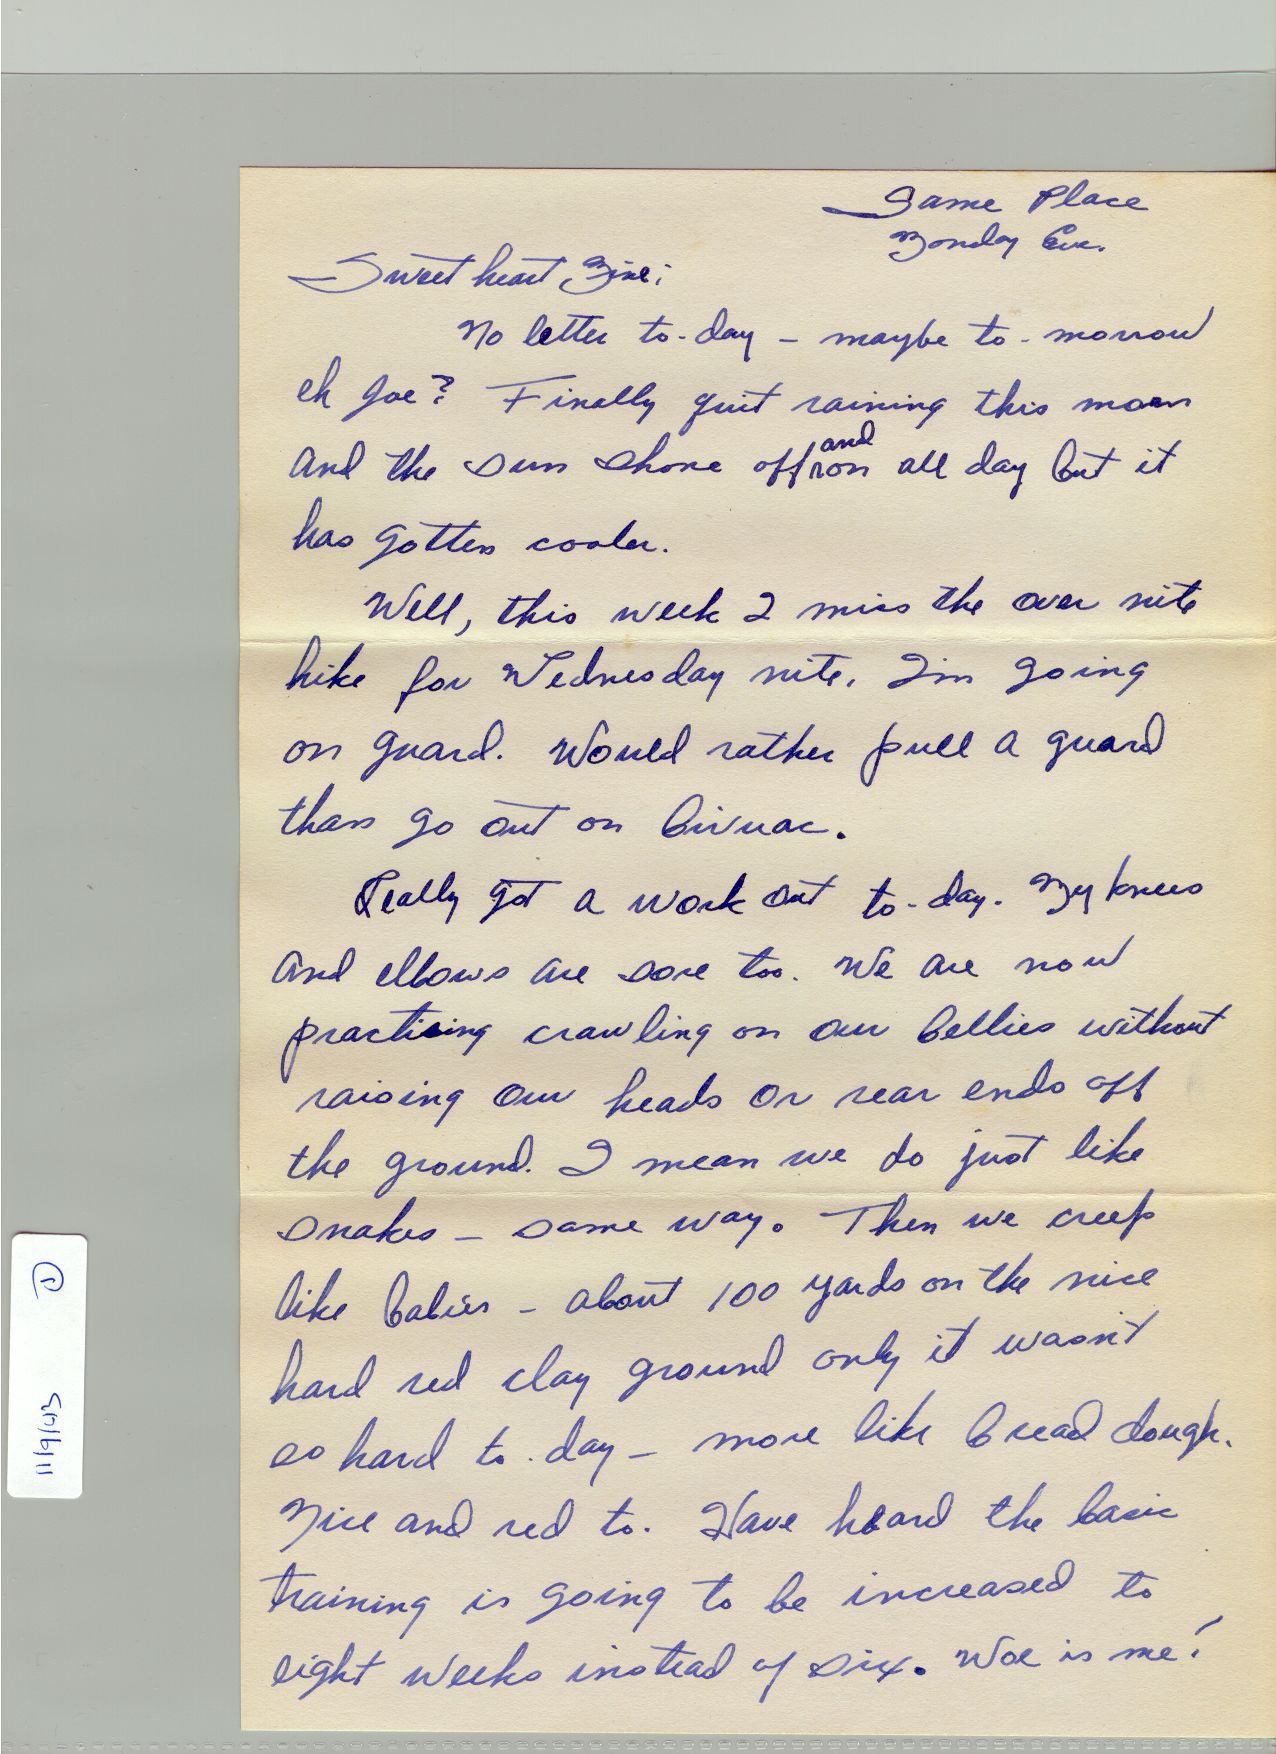 Same Place
Monday Eve.
Sweet heart Mine;
No letter to-day – maybe to-morrow
eh Joe? Finally quit raining this morn
and the sun shone off and on all day but it
has gotten cooler.
Well, this week I miss the over nite
hike for Wednesday nite. I'm going
on guard. Would rather pull a guard
than go out on bivuac.
Really got a work out to-day. My knees
and elbows are sore too. We are now
practicing crawling on our bellies without
raising our heads or rear ends off
the ground. I mean we do just like
snakes – same way. Then we creep
like babies – about 100 yards on the nice
hard red clay ground only it wasn't
so hard to-day – more like bread dough.
Nice and red to. Have heard the basic
training is going to be increased to
eight weeks instead of six. Woe is me!
①
11/9/43